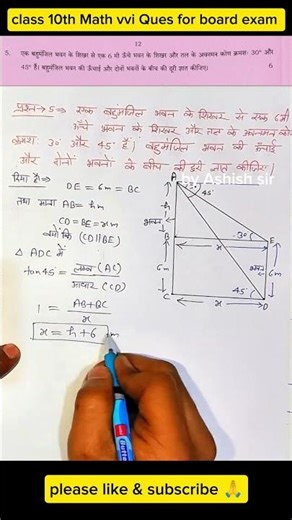 class 10th Math vvi Ques for board exam
12
5. एक बहुमंजिल भवन के शिखर से एक 6 मी ऊँचे भवन के शिखर और तल के अवनमन कोण क्रमशः 30° और
45° हैं। बहुमंजिल भवन की ऊँचाई और दोनों भवनों के बीच की दूरी ज्ञात कीजिए।
6
प्रश्न→5⇒ एक बहुमंजिल भवन के शिखर से एक 6मी
ऊँचे भवन के शिखर और तल के अवनमन कोण
क्रमशः 30° और 45° हैं। बहुमंजिल भवन की ऊँचाई
और दोनों भवनों के बीच की दूरी ज्ञात कीजिए।
दिया है⇒
DE = 6m = BC
तथा माना AB = h m
CD = BE = x m
क्योंकि (CD||BE)
Δ ADC में
tan45 = लम्ब (AC)
आधार (CD)
1 = AB+BC
x
x = h+6 m
by Ashish sir
A
30
45
h
भवन
B
30
E
6m
भवन
6m
45
C
x
D
please like & subscribe 🙏